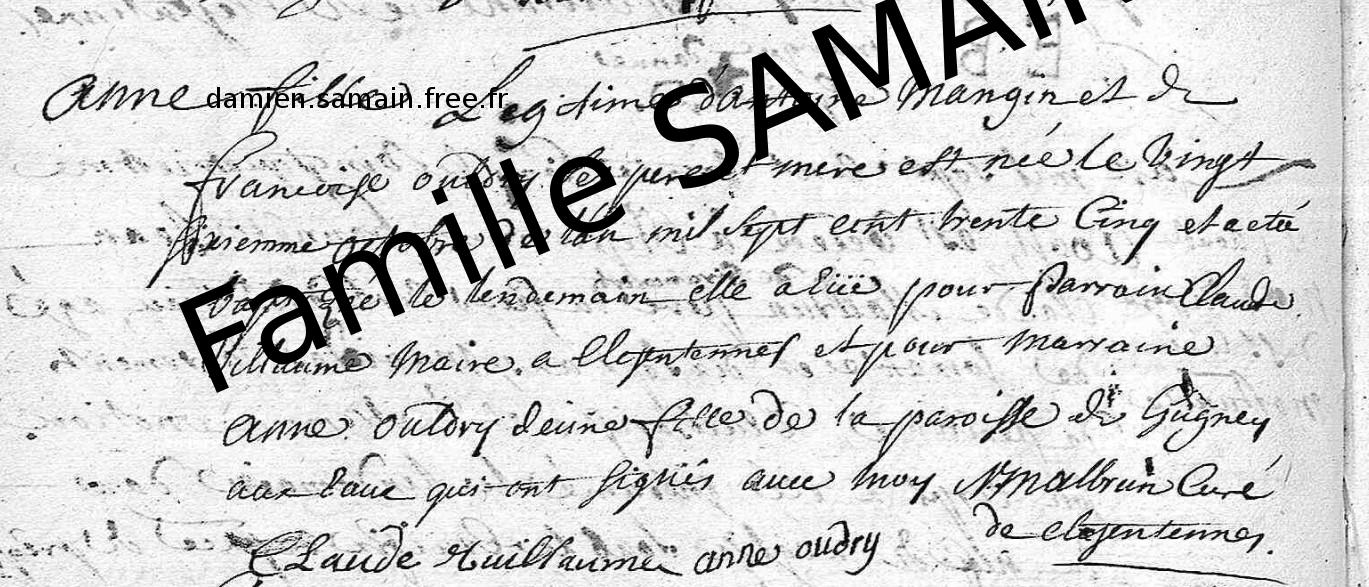 anne fille Legitime d'antoine Mangin et de
damien.samain.free.fr
francoise oudry ses pere et mere est née le vingt
sixiemme octobre de l'an mil sept cent trente Cinq et a etée
baptizée le lendemain elle a eüe pour parrain Claude
Guillaume Maire a et pour marraine
anne oudry jeune fille de la paroisse de Gugney
aux eaux qui ont signés avec moy N Malbrun Curé
de
Claude Guillaume anne oudry
Famille SAMAIN